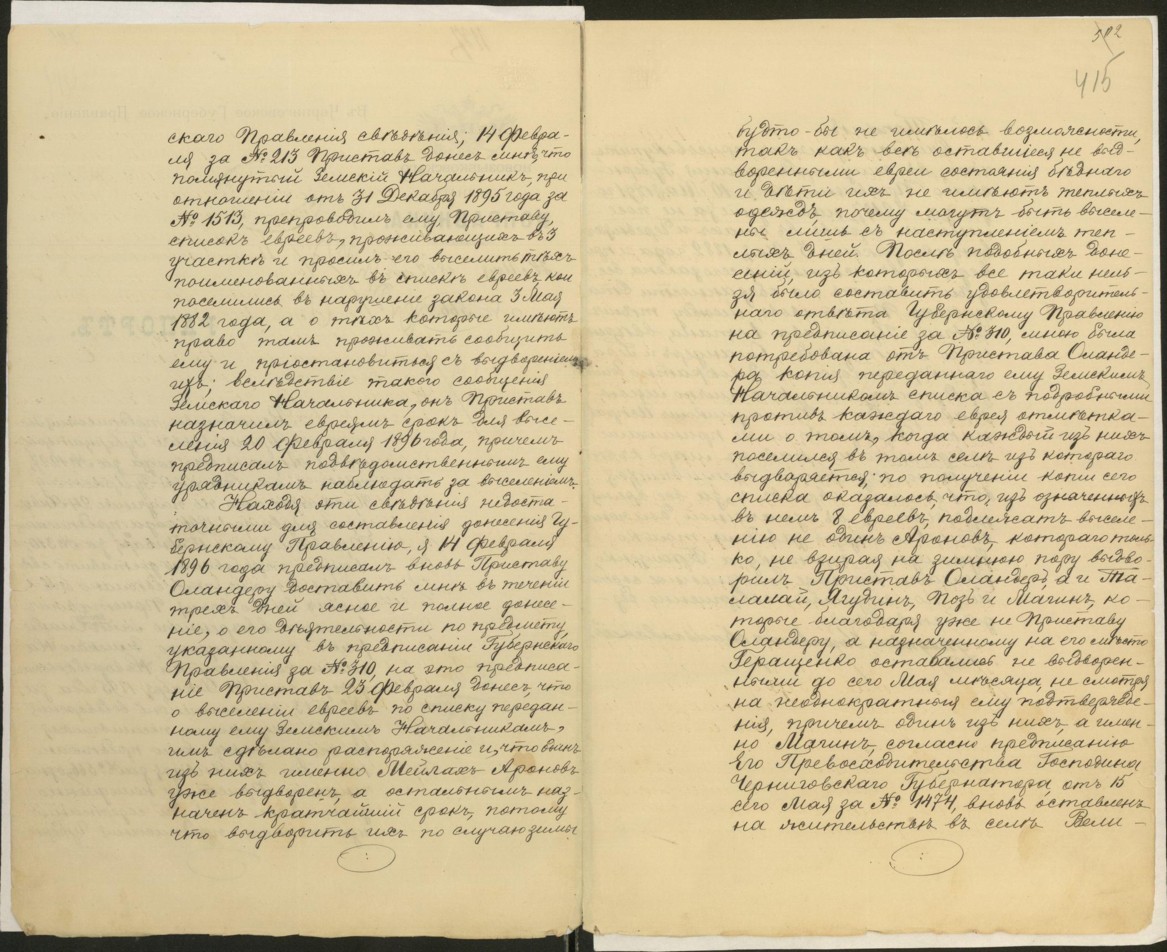 скаго Правленія свѣдѣнія; 14 Февра-
ля за № 213 Приставъ донесъ мнѣ, что
помянутый Земскій Начальникъ, при
отношеніи отъ 31 Декабря 1895 года за
№ 1513, препроводилъ ему, Приставу,
списокъ евреевъ, проживающихъ въ 3
участкѣ и просилъ его выселить тѣхъ
поименованныхъ въ спискѣ евреевъ, кои
поселились въ нарушеніе закона 3 Мая
1882 года, а о тѣхъ которые имѣютъ
право тамъ проживать сообщить
ему и пріостановиться съ выдвореніемъ
ихъ; вслѣдствіе такого сообщенія
Земскаго Начальника, онъ Приставъ
назначилъ евреямъ срокъ для высе-
ленія 20 Февраля 1896 года, причемъ
предписалъ подвѣдомственнымъ ему
урядникамъ наблюдать за выселеніемъ.
Находя эти свѣдѣнія недоста-
точными для составленія донесенія Гу-
бернскому Правленію, я 14 Февраля
1896 года предписалъ вновь Приставу
Оландеру доставить мнѣ въ теченіи
трехъ дней ясное и полное донесе-
ніе, о его дѣятельности по предмету,
указанному въ предписаніи Губернскаго
Правленія за № 310, на это предписа-
ніе Приставъ 23 Февраля донесъ, что
о выселеніи евреевъ по списку передан-
ному ему Земскимъ Начальникомъ,
имъ сдѣлано распоряженіе и, что одинъ
изъ нихъ именно Мейлахъ Ароновъ
уже выдворенъ, а остальнымъ наз-
наченъ кратчайшій срокъ, потому
что выдворить ихъ по случаю зимы
502
415
будто-бы не имѣлось возможности,
такъ какъ всѣ оставшіеся не выд-
воренными евреи состоянія бѣднаго
и дѣти ихъ не имѣютъ теплыхъ
одеждъ, почему могутъ быть выселе-
ны лишь съ наступленіемъ теп-
лыхъ дней. Послѣ подобныхъ доне-
сеній, изъ которыхъ все таки нель-
зя было составить удовлетворитель-
наго отвѣта Губернскому Правленію
на предписаніе за № 310, мною была
потребована отъ Пристава Оланде-
ра копія переданнаго ему Земскимъ
Начальникомъ списка съ подробными
противъ каждаго еврея отмѣтка-
ми о томъ, когда каждый изъ нихъ
поселился въ томъ селѣ изъ котораго
выдворяется; по полученіи копіи сего
списка оказалось, что, изъ означенныхъ
въ немъ 8 евреевъ, подлежатъ выселе-
нію не одинъ Ароновъ, котораго толь-
ко, не взирая на зимнюю пору выдво-
рилъ Приставъ Оландеръ, а и Та-
лалай, Ягудинъ, Позъ и Магинъ, ко-
торые благодаря уже не Приставу
Оландеру, а назначенному на его мѣсто
Геращенко оставались не выдворен-
ными до сего Мая мѣсяца, не смотря
на неоднократныя ему подтвержде-
нія, причемъ одинъ изъ нихъ, а имен-
но Магинъ, согласно предписанію
Его Превосходительства Господина
Черниговскаго Губернатора, отъ 15
сего Мая за № 1474, вновь оставленъ
на жительствѣ въ селѣ Вели-